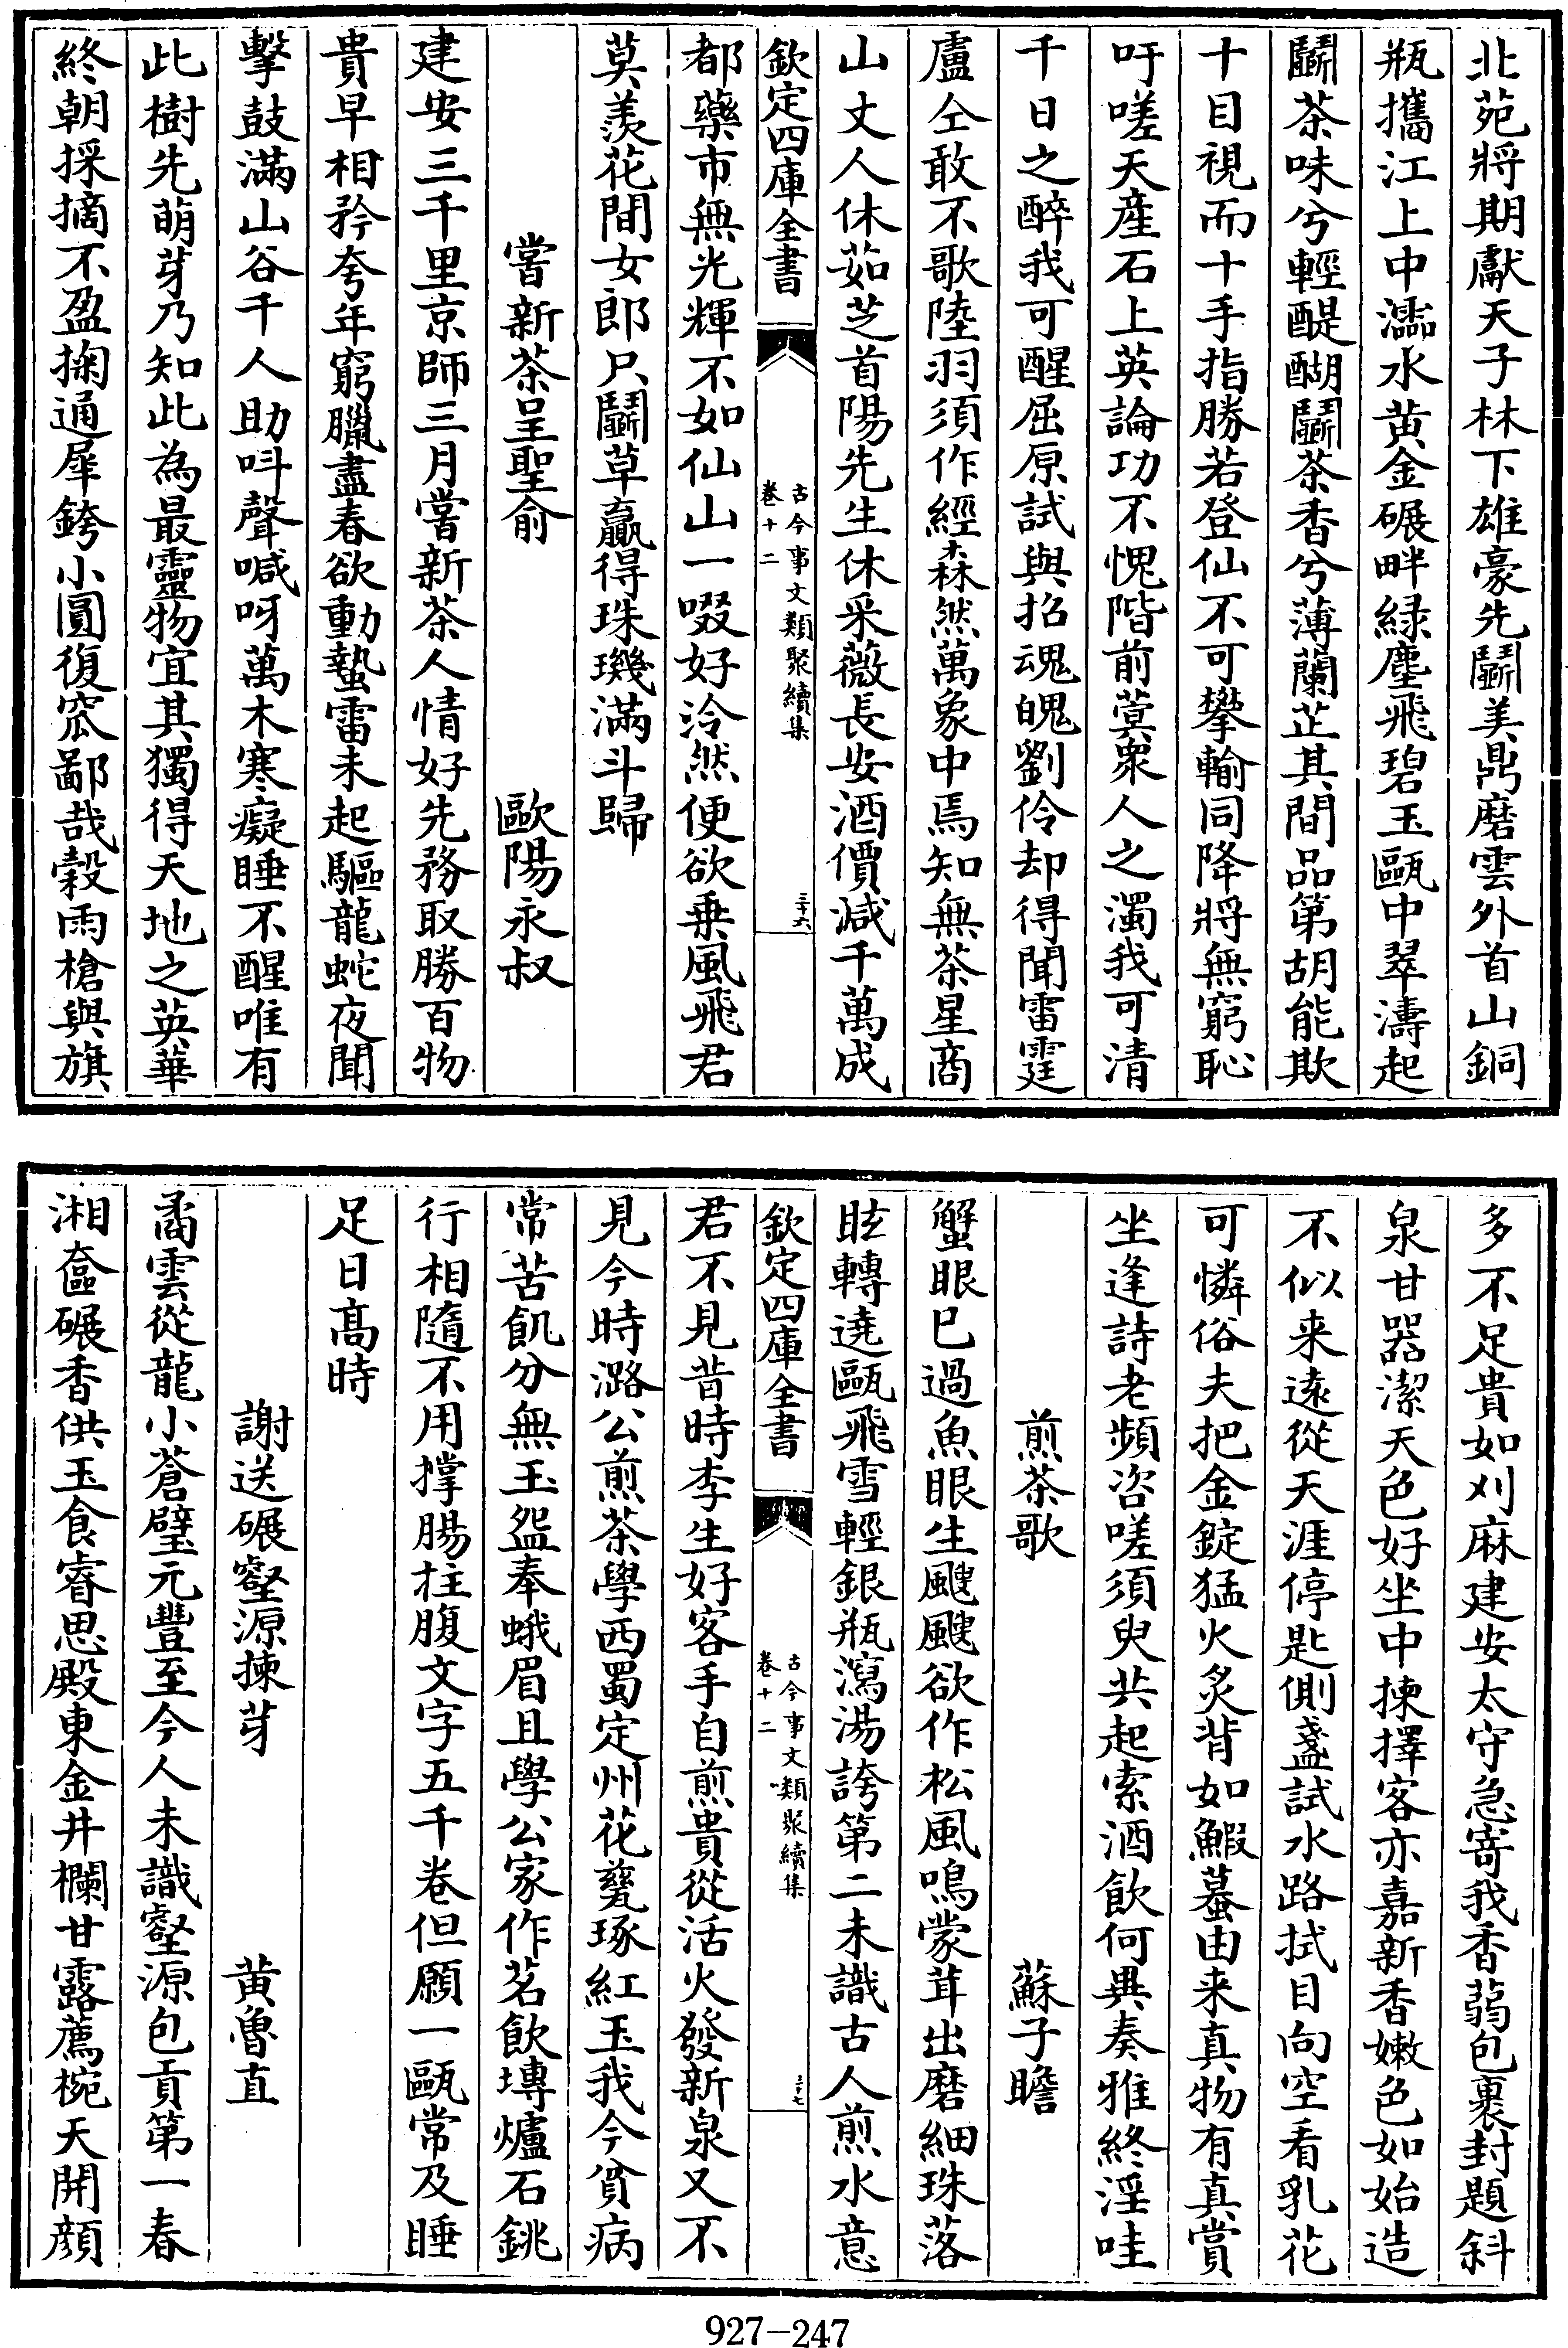 北苑將期獻天子林下雄豪先鬭美鼎磨雲外首山銅
瓶攜江上中濡水黄金碾畔緑塵飛碧玉甌中翠濤起
鬭茶味兮輕醍醐鬭茶香兮薄蘭芷其間品第胡能欺
十目視而十手指勝若登仙不可攀輸同降將無窮恥
吁嗟天産石上英論功不愧階前蓂衆人之濁我可清
千日之醉我可醒屈原試與招魂魄劉伶却得聞雷霆
盧仝敢不歌陸羽須作經森然萬象中焉知無茶星商
山丈人休茹芝首陽先生休采薇長安酒價減千萬成
欽定四庫全書
古今事文類聚續集
卷十二
三十六
都藥市無光輝不如仙山一啜好泠然便欲乗風飛君
莫羨花間女郎只鬭草贏得珠璣滿斗歸
嘗新茶呈聖俞 歐陽永叔
建安三千里京師三月嘗新茶人情好先務取勝百物
貴早相矜夸年窮臘盡春欲動蟄雷未起驅龍蛇夜聞
擊鼓滿山谷千人助呌聲喊呀萬木寒癡睡不醒唯有
此樹先萌芽乃知此為最靈物宜其獨得天地之英華
終朝採摘不盈掬通犀銙小圓復窊鄙哉穀雨槍與旗
多不足貴如刈麻建安太守急寄我香蒻包裹封題斜
泉甘器潔天色好坐中揀擇客亦嘉新香嫩色如始造
不似来逺從天涯停匙側盞試水路拭目向空看乳花
可憐俗夫把金錠猛火炙背如鰕蟇由来真物有真賞
坐逢詩老頻咨嗟須臾共起索酒飲何異奏雅終淫哇
煎茶歌 蘇子瞻
蟹眼已過魚眼生颼颼欲作松風鳴蒙茸出磨細珠落
眩轉遶甌飛雪輕銀瓶瀉湯誇第二未識古人煎水意
欽定四庫全書
古今事文類聚續集
卷十二
三十七
君不見昔時李生好客手自煎貴從活火發新泉又不
見今時潞公煎茶學西蜀定州花甆琢紅玉我今貧病
常苦飢分無玉盌奉蛾眉且學公家作茗飲塼爐石銚
行相隨不用撑腸拄腹文字五千卷但願一甌常及睡
足日髙時
謝送碾壑源揀芽 黄魯直
矞雲從龍小蒼璧元豐至今人未識壑源包貢第一春
湘奩碾香供玉食睿思殿東金井欄甘露薦椀天開顔
927-247